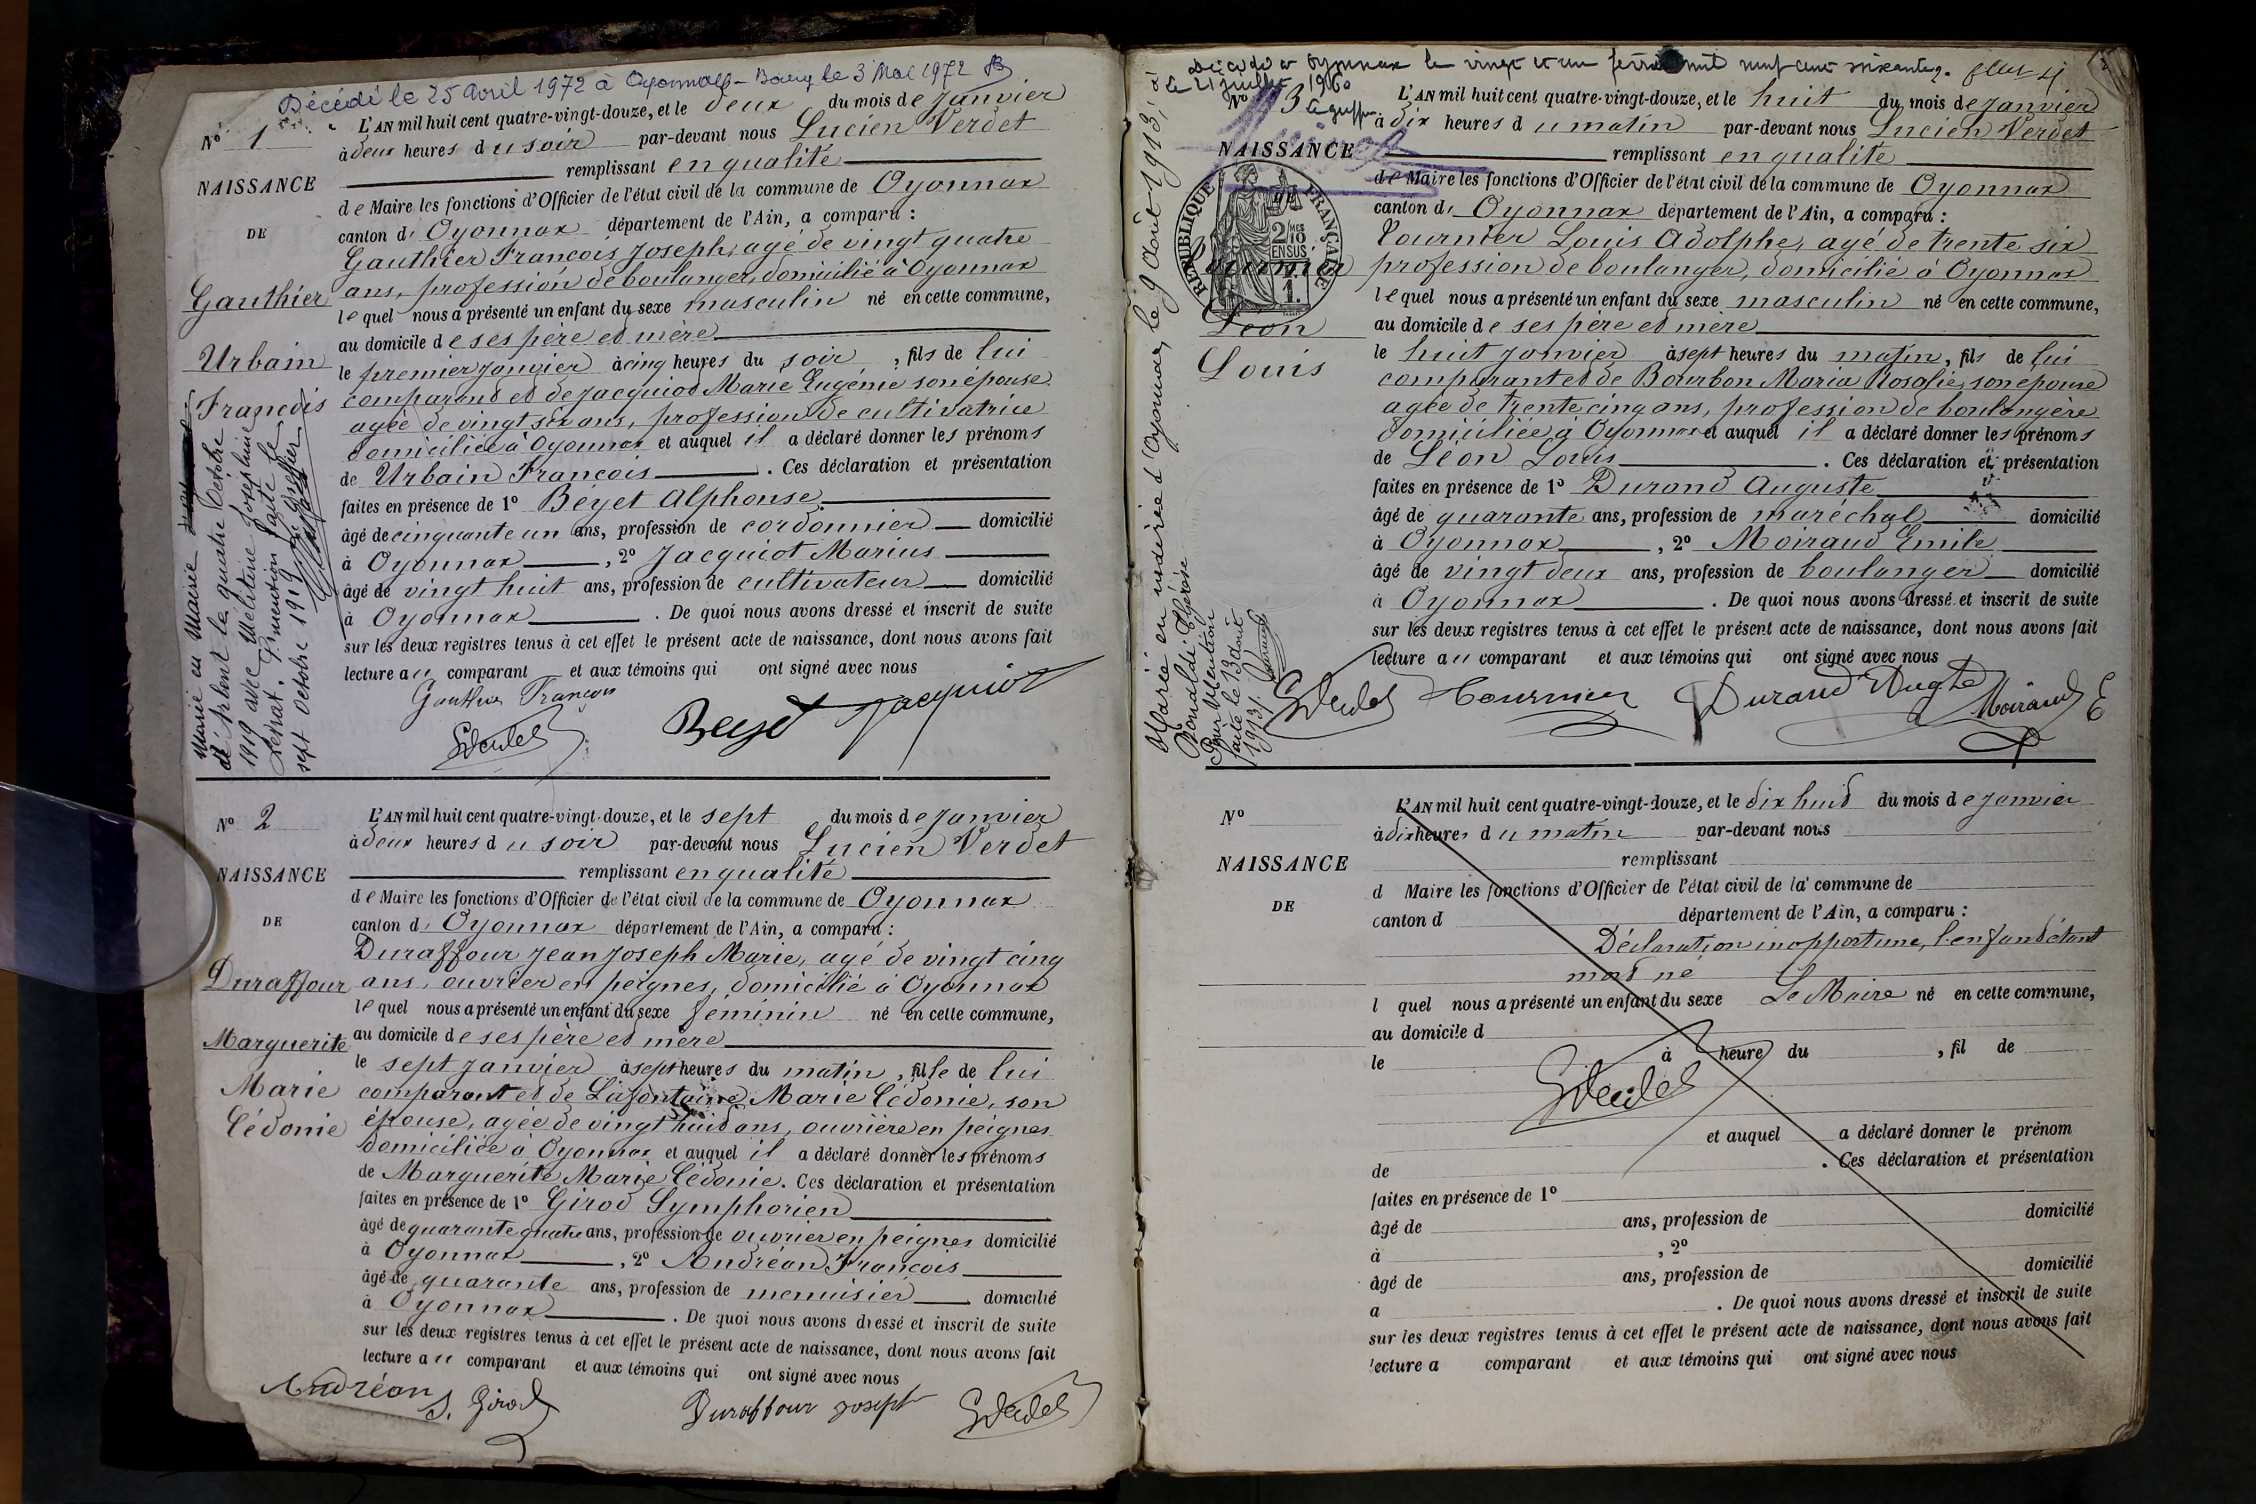 Décédé le 25 Avril 1972 à Oyonnax - Bourg le 3 Mai 1972
N° 1
NAISSANCE
DE
Gauthier
Urbain
François
L'AN mil huit cent quatre-vingt-douze, et le deux du mois de Janvier
à deux heures du soir par-devant nous Lucien Verdet
remplissant en qualité
de Maire les fonctions d'Officier de l'état civil de la commune de Oyonnax
canton d' Oyonnax département de l'Ain, a comparu :
Gauthier François Joseph, agé de vingt quatre
ans, profession de boulanger, domicilié à Oyonnax
lequel nous a présenté un enfant du sexe masculin né en cette commune,
au domicile de ses père et mère
le premier Janvier à cinq heures du soir, fils de lui
comparant et de Jacquiod Marie Eugénie son épouse
agée de vingt six ans, profession de cultivatrice
domiciliée à Oyonnax et auquel il a déclaré donner les prénoms
de Urbain François. Ces déclaration et présentation
faites en présence de 1° Béyet Alphonse
âgé de cinquante un ans, profession de cordonnier domicilié
à Oyonnax, 2° Jacquiot Marius
âgé de vingt huit ans, profession de cultivateur domicilié
à Oyonnax. De quoi nous avons dressé et inscrit de suite
sur les deux registres tenus à cet effet le présent acte de naissance, dont nous avons fait
lecture au comparant et aux témoins qui ont signé avec nous
Gauthier François
Beyet Jacquiot
Marié en Mairie
le quatre Octobre
1919 avec Joséphine
P. mention faite le
sept Octobre 1919 Le Greffier
N° 2
NAISSANCE
DE
Duraffour
Marguerite
Marie
Cédonie
L'AN mil huit cent quatre-vingt-douze, et le sept du mois de Janvier
à deux heures du soir par-devant nous Lucien Verdet
remplissant en qualité
de Maire les fonctions d'Officier de l'état civil de la commune de Oyonnax
canton d' Oyonnax département de l'Ain, a comparu :
Duraffour Jean Joseph Marie, agé de vingt cinq
ans, ouvrier en peignes, domicilié à Oyonnax
lequel nous a présenté un enfant du sexe féminin né en cette commune,
au domicile de ses père et mère
le sept Janvier à sept heures du matin, fille de lui
comparant et de Lafontaine Marie Cédonie, son
épouse, agée de vingt huit ans, ouvrière en peignes
domiciliée à Oyonnax et auquel il a déclaré donner les prénoms
de Marguerite Marie Cédonie. Ces déclaration et présentation
faites en présence de 1° Girod Symphorien
âgé de quarante quatre ans, profession de ouvrier en peignes domicilié
à Oyonnax, 2° Andréan François
âgé de quarante ans, profession de menuisier domicilié
à Oyonnax. De quoi nous avons dressé et inscrit de suite
sur les deux registres tenus à cet effet le présent acte de naissance, dont nous avons fait
lecture au comparant et aux témoins qui ont signé avec nous
Andréan S. Girod Duraffour Joseph
Décédé à Oyonnax le vingt et un février mil neuf cent soixante
le 21 Juillet 1960
N° 3
Le greffier
NAISSANCE
DE
RÉPUBLIQUE FRANÇAISE
2/10MES
EN SUS
1.
Léon
Louis
L'AN mil huit cent quatre-vingt-douze, et le huit du mois de Janvier
à dix heures du matin par-devant nous Lucien Verdet
remplissant en qualité
de Maire les fonctions d'Officier de l'état civil de la commune de Oyonnax
canton d' Oyonnax département de l'Ain, a comparu :
Tournier Louis Adolphe, agé de trente six
profession de boulanger, domicilié à Oyonnax
lequel nous a présenté un enfant du sexe masculin né en cette commune,
au domicile de ses père et mère
le huit Janvier à sept heures du matin, fils de lui
comparant et de Bourbon Maria Rosalie, son épouse
agée de trente cinq ans, profession de boulangère
domiciliée à Oyonnax et auquel il a déclaré donner les prénoms
de Léon Louis. Ces déclaration et présentation
faites en présence de 1° Durand Auguste
âgé de quarante ans, profession de maréchal domicilié
à Oyonnax, 2° Moiraud Emile
âgé de vingt deux ans, profession de boulanger domicilié
à Oyonnax. De quoi nous avons dressé et inscrit de suite
sur les deux registres tenus à cet effet le présent acte de naissance, dont nous avons fait
lecture au comparant et aux témoins qui ont signé avec nous
Tournier Durand Augte Moiraud E
Marié en mairie d'Oyonnax, le 9 août 1913, à
Pour Mention
faite le 13 août
1913.
N°
NAISSANCE
DE
L'AN mil huit cent quatre-vingt-douze, et le dix huit du mois de Janvier
à dix heures du matin par-devant nous
remplissant
d Maire les fonctions d'Officier de l'état civil de la commune de
canton d département de l'Ain, a comparu :
Déclaration inopportune, l'enfant étant
mort né
l quel nous a présenté un enfant du sexe Le Maire né en cette commune,
au domicile d
le à heure du , fil de
et auquel a déclaré donner le prénom
de . Ces déclaration et présentation
faites en présence de 1°
âgé de ans, profession de domicilié
à , 2°
âgé de ans, profession de domicilié
a . De quoi nous avons dressé et inscrit de suite
sur les deux registres tenus à cet effet le présent acte de naissance, dont nous avons fait
lecture a comparant et aux témoins qui ont signé avec nous